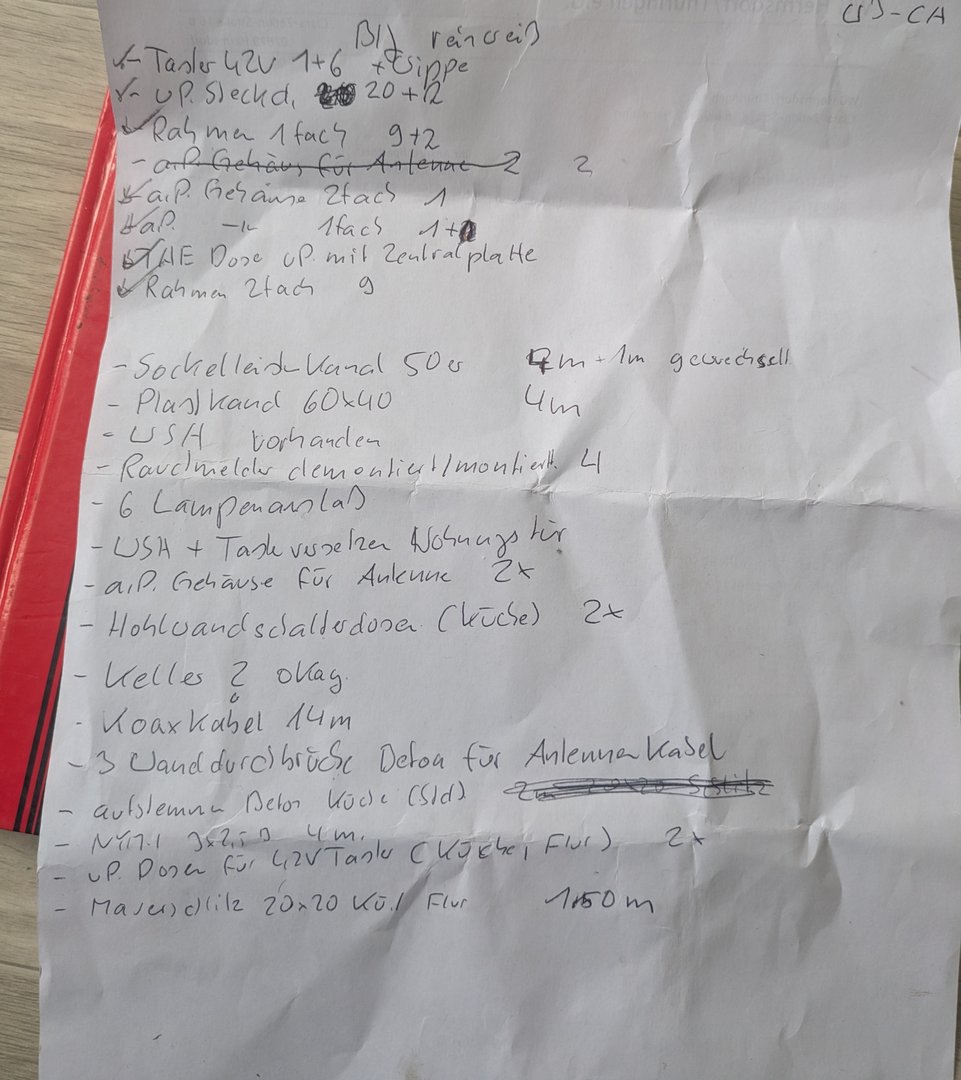 BIJ reinweiß
- Taster 42V 1+6 + Wippe
- uP. Steckd. 20+12
- Rahmen 1fach 9+2
- a.P. Gehäus für Antenne 2 2
- a.P. Gehäuse 2fach 1
- aP. -"- 1fach 1+
- TAE Dose uP. mit Zentralplatte
- Rahmen 2fach 9
- Sockelleistenkanal 50er 4m + 1m gewechselt
- Plastkanal 60x40 4m
- WSA vorhanden
- Rauchmelder demontiert/montiert. 4
- 6 Lampenauslaß
- WSA + Taster versetzen Wohnungstür
- a.P. Gehäuse für Antenne 2x
- Hohlwandschalterdosen (Küche) 2x
- Kelles ? okay.
- Koaxkabel 14m
- 3 Wanddurchbrüche Beton für Antennenkabel
- aufstemmen Beton Küche (Std)
- NYM-J 3x2,5 4m.
- uP. Dosen für 42V Taster (Küche, Flur) 2x
- Mauerschlitz 20x20 Kü./ Flur 1,50m